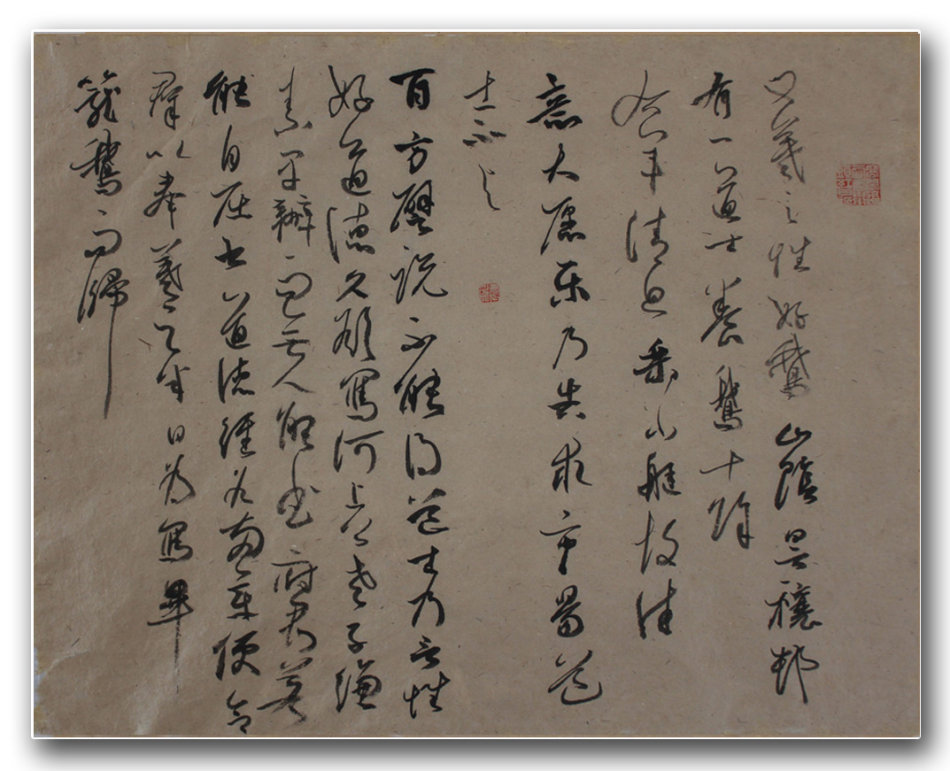 又羲之性好鵝山陰曇穰邨
有一道士養鵝十餘
右軍清旦乘小艇故往
意大願樂乃告求市易道
士不与
百方譬說不能得道士乃言性
好道德久欲寫河上公老子縑
素早辦而無人能書府君若
能自屈書道德經各兩章便合
羣以奉羲之半日為寫畢
籠鵝而歸